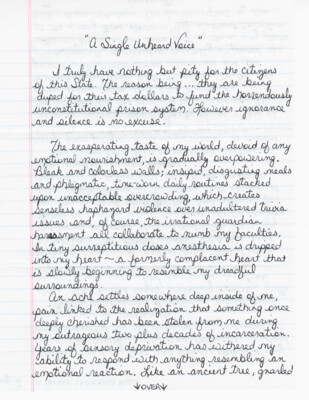 "A Single Unheard Voice"
I truly have nothing but pity for the citizens
of this State. The reason being ... they are being
duped for their tax dollars to fund the horrendously
unconstitutional prison system. However ignorance
and silence is no excuse.
The exasperating taste of my world, devoid of any
emotional nourishment, is gradually overpowering.
Bleak and colorless walls; insipid, disgusting meals
and phlegmatic, time-worn daily routines stacked
upon unacceptable overcrowding, which creates
senseless haphazard violence over unadultered trivia
issues and, of course, the irrational guardian
harassment all collaborate to numb my faculties.
In tiny surreptitious doses anesthesia is dripped
into my heart ~ a formerly complacent heart that
is slowly beginning to resemble my dreadful
surroundings.
An ache settles somewhere deep inside of me,
pain linked to the realization that something once
deeply cherished has been stolen from me during
my outrageous two plus decades of incarceration.
Years of sensory deprivation has withered my
ability to respond with anything resembling an
emotional reaction. Like an ancient tree, gnarled
↓OVER↓